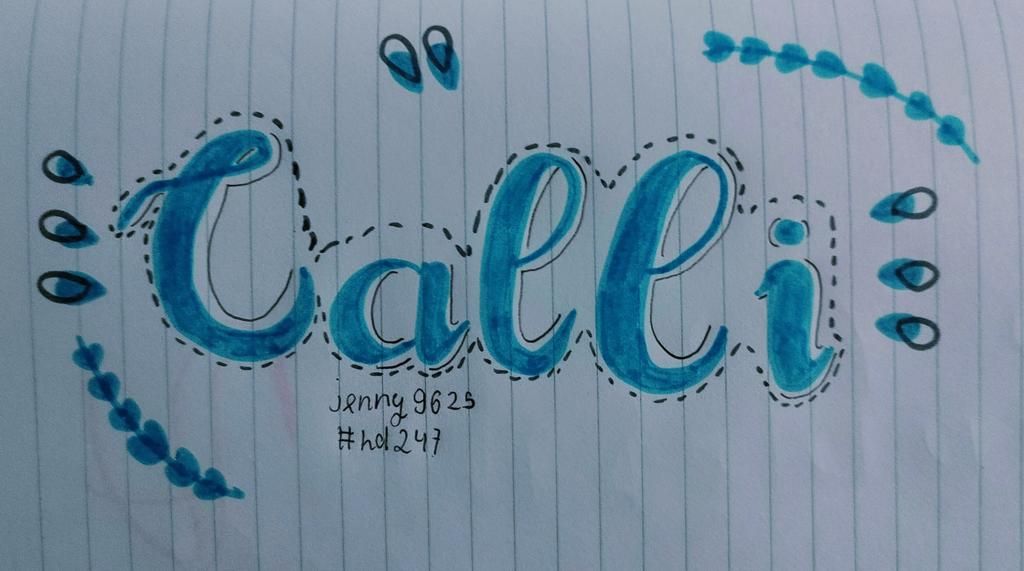 Calli
jenny9625
#hd247